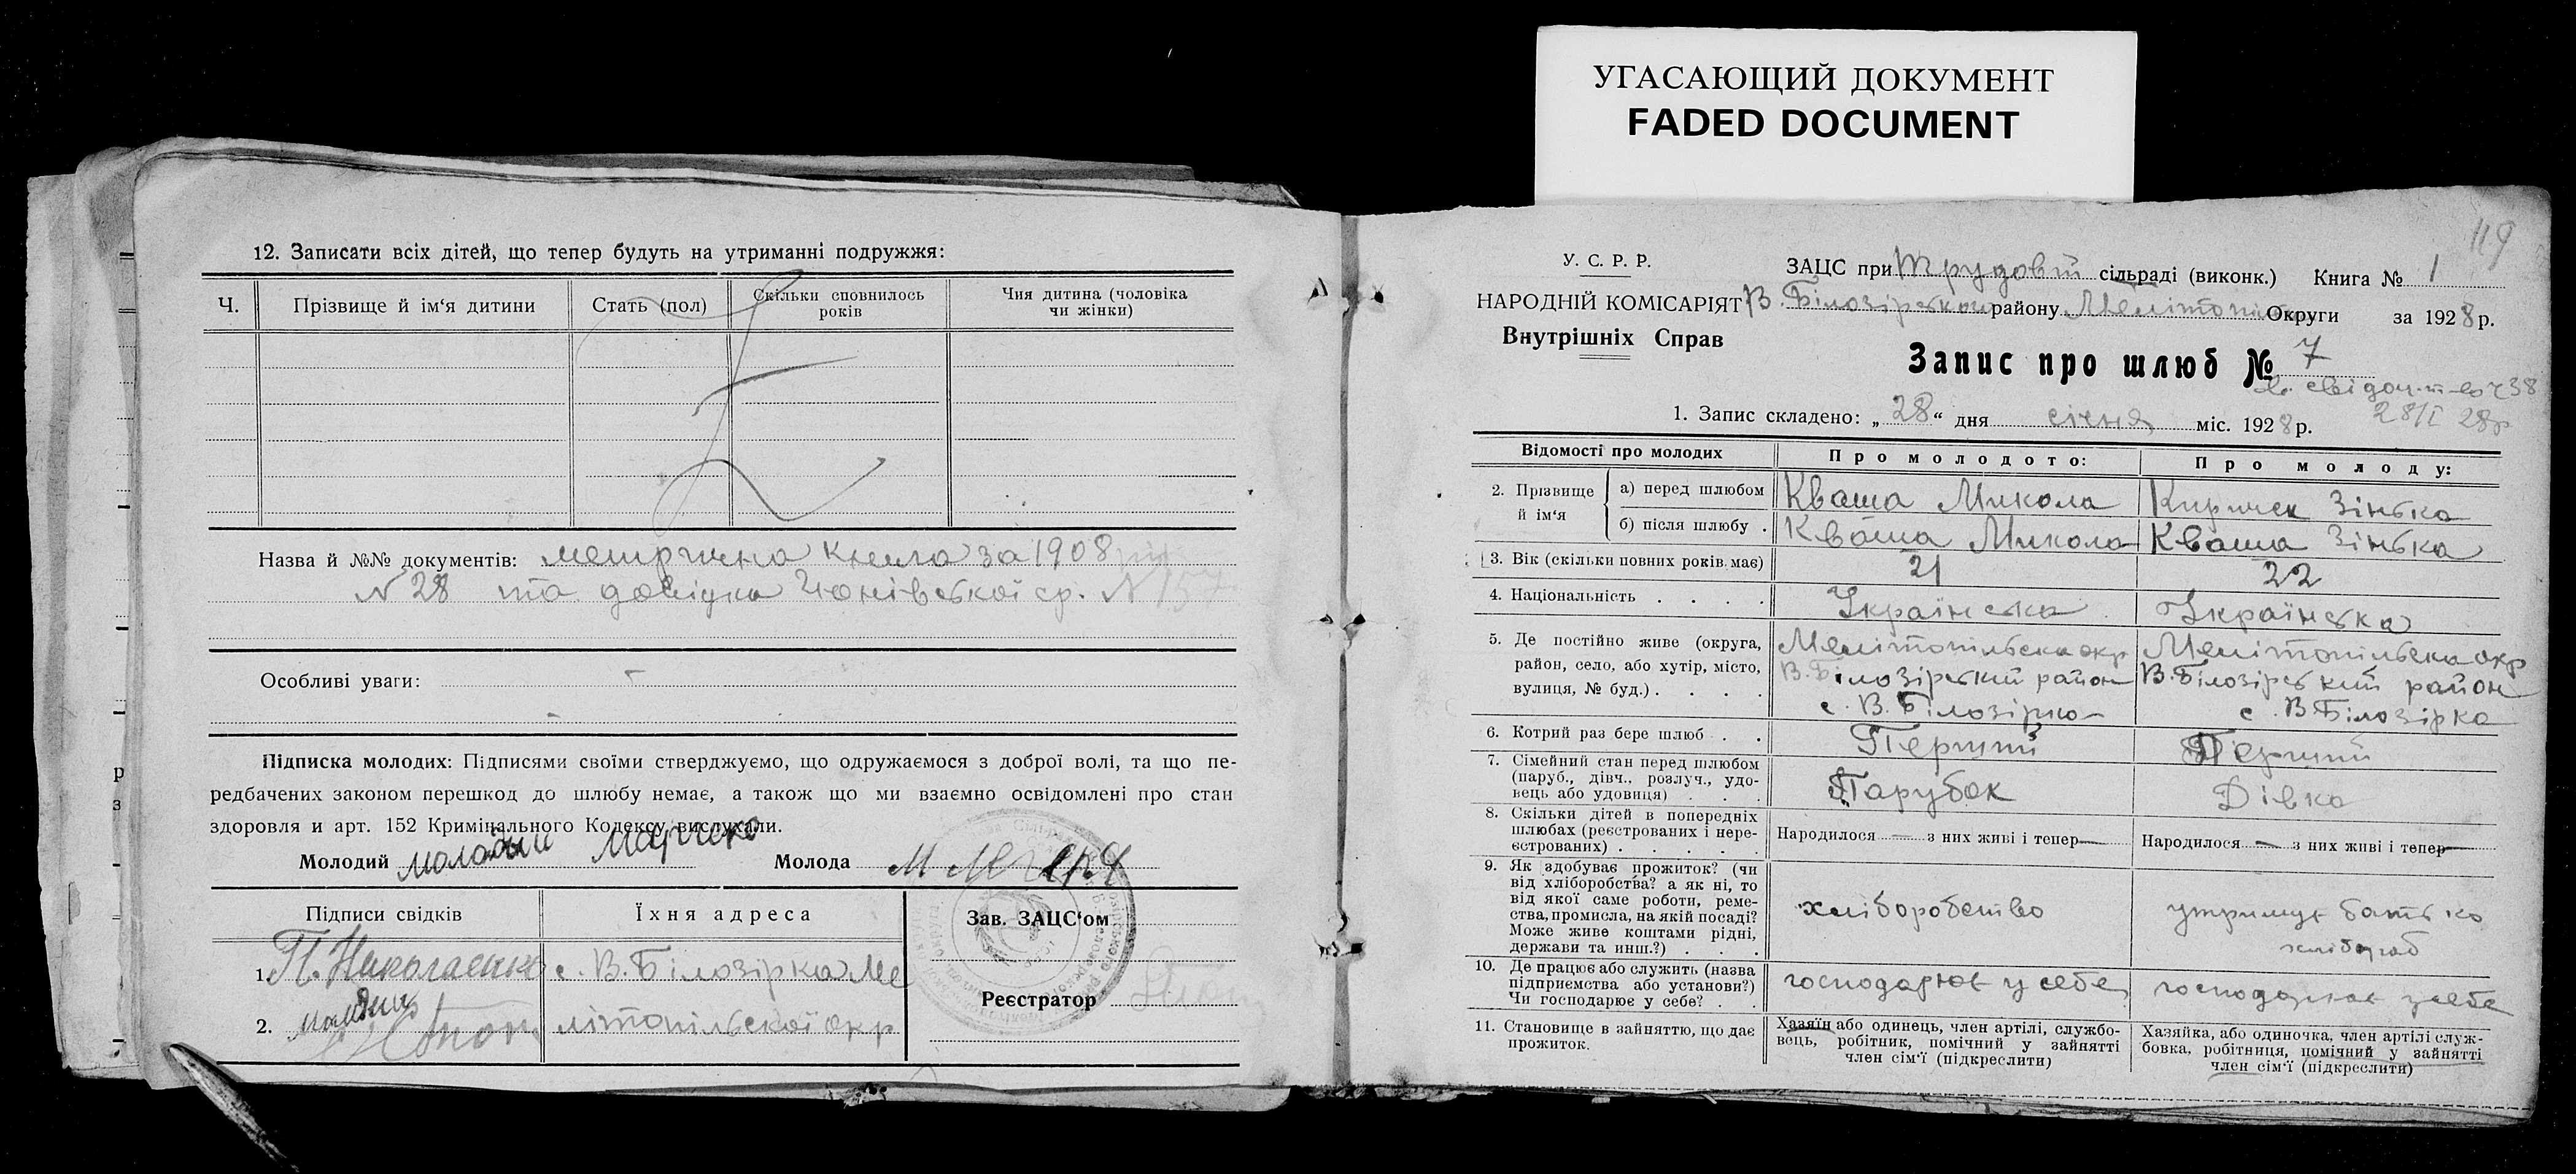 УГАСАЮЩИЙ ДОКУМЕНТ
FADED DOCUMENT
12. Записати всіх дітей, що тепер будуть на утриманні подружжя:
Ч. Прізвище й ім‘я дитини Стать (пол) Скільки сповнилось років Чия дитина (чоловіка чи жінки)
Назва й №№ документів: метрична книга за 1908 рік
N 28 та довідка ср. N 157
Особливі уваги: -
Підписка молодих: Підписями своїми стверджуємо, що одружаємося з доброї волі, та що пе-
редбачених законом перешкод до шлюбу немає, а також що ми взаємно освідомлені про стан
здоровля и арт. 152 Кримінального Кодексу вислухали.
Молодий Молода
Підписи свідків Їхня адреса Зав. ЗАЦС‘ом
1. П. Николаенко с. В. Білозірка Ме
Реєстратор
2. літопільської окр
119
У. С. Р. Р.
НАРОДНІЙ КОМІСАРІЯТ
Внутрішніх Справ
ЗАЦС при Трудовій сільраді (виконк.) Книга № 1
В. Білозірського району Мелітопільск Округи за 1928 р.
Запис про шлюб № 7
38
28/I 28р
1. Запис складено: „28“ дня січня міс. 1928 р.
Відомості про молодих Про молодого: Про молоду:
2. Прізвище й ім‘я
а) перед шлюбом Кваша Микола Киричек Зінька
б) після шлюбу . Кваша Микола Кваша Зінька
3. Вік (скільки повних років має) 21 22
4. Національність . . . . Українська Українська
5. Де постійно живе (округа, Мелітопільска окр Мелітопільска окр
район, село, або хутір, місто, В. Білозірский район В. Білозірский район
вулиця, № буд.) . . . . с. В. Білозірка с. В. Білозірка
6. Котрий раз бере шлюб . . Перший Перший
7. Сімейний стан перед шлюбом
(паруб., дівч., розлуч., удо-
вець або удовиця) . . . Парубок Дівка
8. Скільки дітей в попередніх
шлюбах (реєстрованих і нере-
єстрованих) . . . . . Народилося — з них живі і тепер — Народилося — з них живі і тепер —
9. Як здобуває прожиток? (чи
від хліборобства? а як ні, то
від якої саме роботи, реме-
ства, промисла, на якій посаді?
Може живе коштами рідні,
держави та инш.?) . . . хліборобство утримує батько
хлібороб
10. Де працює або служить (назва
підприємства або установи?)
Чи господарює у себе? . . господарює у себе господарює у себе
11. Становище в зайняттю, що дає
прожиток.
Хазяїн або одинець, член артілі, службо-
вець, робітник, помічний у зайнятті
член сім‘ї (підкреслити)
Хазяйка, або одиночка, член артілі служ-
бовка, робітниця, помічний у зайнятті
член сім‘ї (підкреслити)